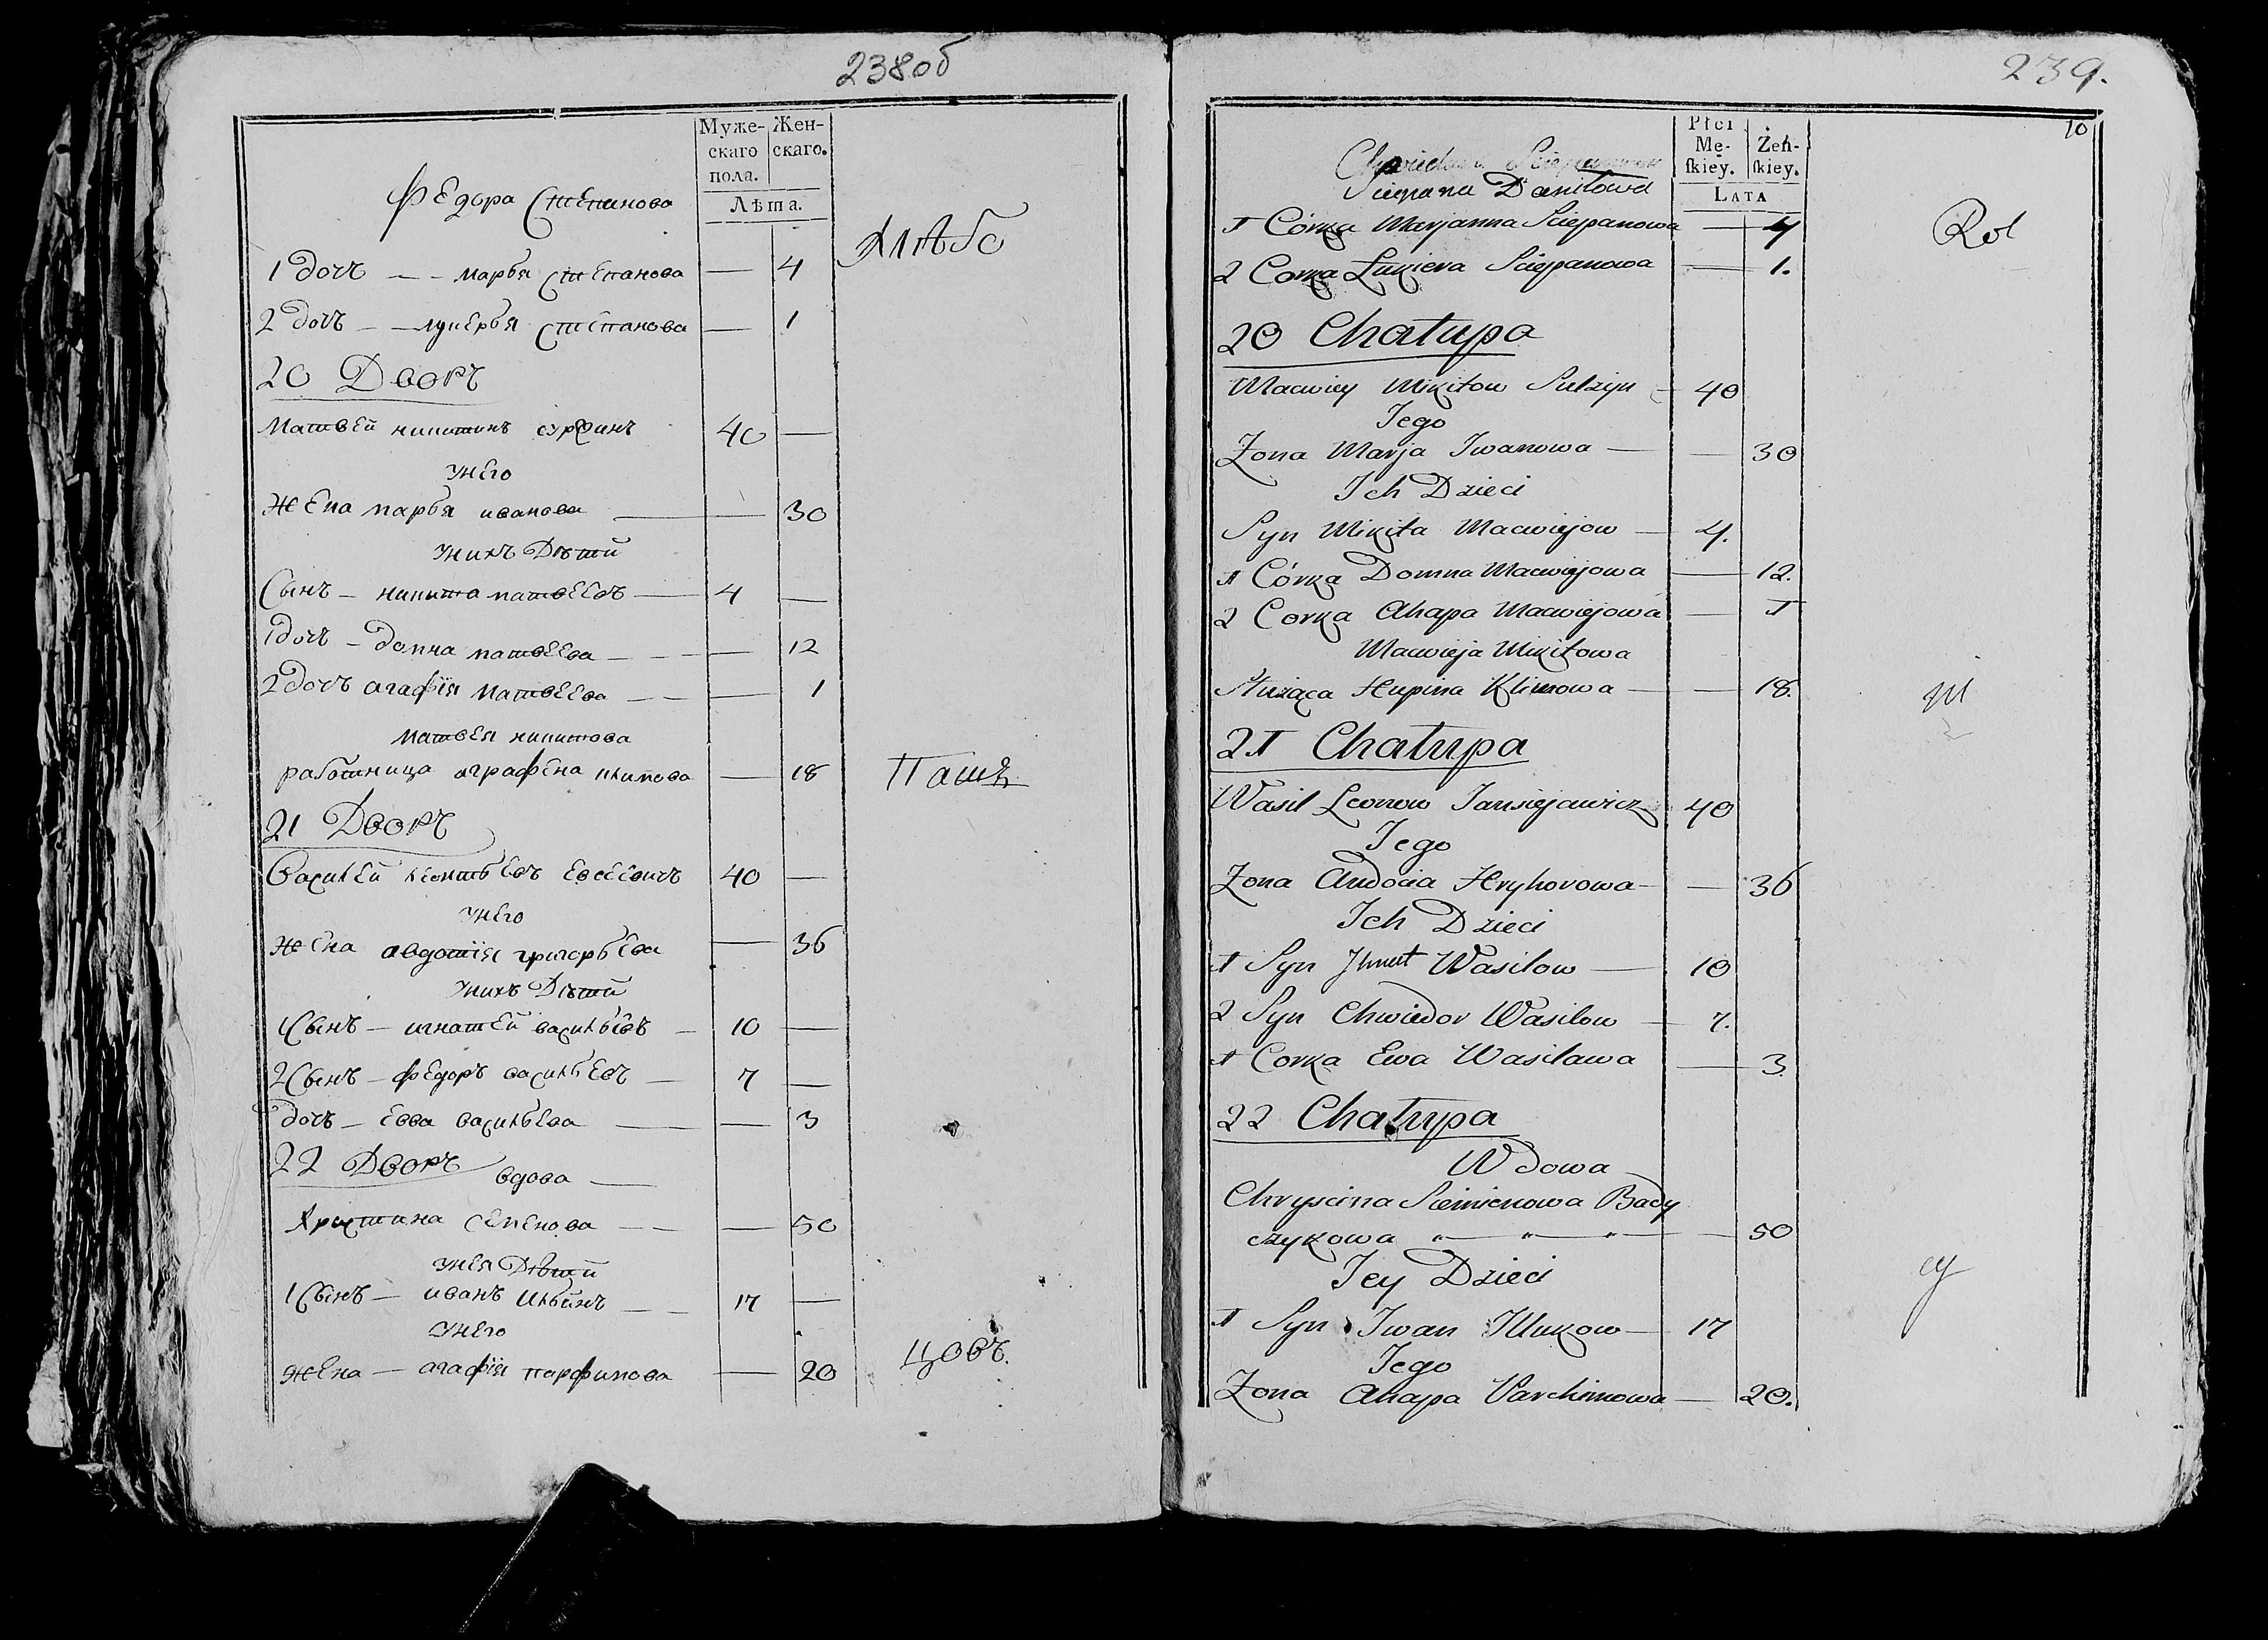 238об
Муже-
скаго
пола.
Жен-
скаго.
Лѣта.
Федора Степанова
Хлѣбо
1 дочь — — марья степанова — 4
2 дочь — — лукерья степанова — 1
20 Дворъ
Матвей никитинъ 40 —
унего
жена марья иванова — 30
унихъ Дѣтй
Сынъ — никита матвеевъ — 4 —
1 дочь — домна матвеева — — 12
2 дочь агафїя матвеева — — 1
матвея никитова
работница аграфена климова — 18
Паш
21 Дворъ
Василей леонтьевъ евсеевичъ 40 —
унего
жена авдотїя григорьева — 36
унихъ Дѣтй
1 Сынъ — игнатей васильевъ — 10 —
2 Сынъ — федоръ васильевъ — 7 —
дочь — евва васильева — — 3
22 Дворъ вдова —
Христина семенова — — 50
унея Дѣтй
1 Сынъ — иванъ ильинъ — — 17 —
унего
жена — агафїя парфимова — 20
цовъ.
239.
10
Płci
Mę-
ſkiey.
Żeń-
ſkiey.
LATA
Sciepana Daniłowa
1 Córka Marjanna Sciepanowa — 4
Rol
2 Corka Łukiera Sciepanowa — 1.
20 Chałupa
Maciey Mikitow — 40
Jego
Zona Marja Jwanowa — — 30
Jch Dzieci
Syn Mikita Maciejow — 4.
1 Córka Domna Maciejowa — 12.
2 Corka Ahapa Maciejowa — 1
Macieja Mikitowa
Służąca Hupina Klimowa — — 18.
ni
21 Chałupa
Wasil Leonow Jausiejewicz 40
Jego
Zona Audocia Hryhorowa — — 36
Jch Dzieci
1 Syn Jhnat Wasilow — 10
2 Syn Chwiedor Wasilow — 7.
1 Corka Ewa Wasilawa — 3.
22 Chałupa
Wdowa
Chryscina Siemienowa Bady
czykowa — — — — 50
Jey Dzieci
cy
1 Syn Jwan Jllukow — 17
Jego
Zona Ahapa Parchimowa — 20.